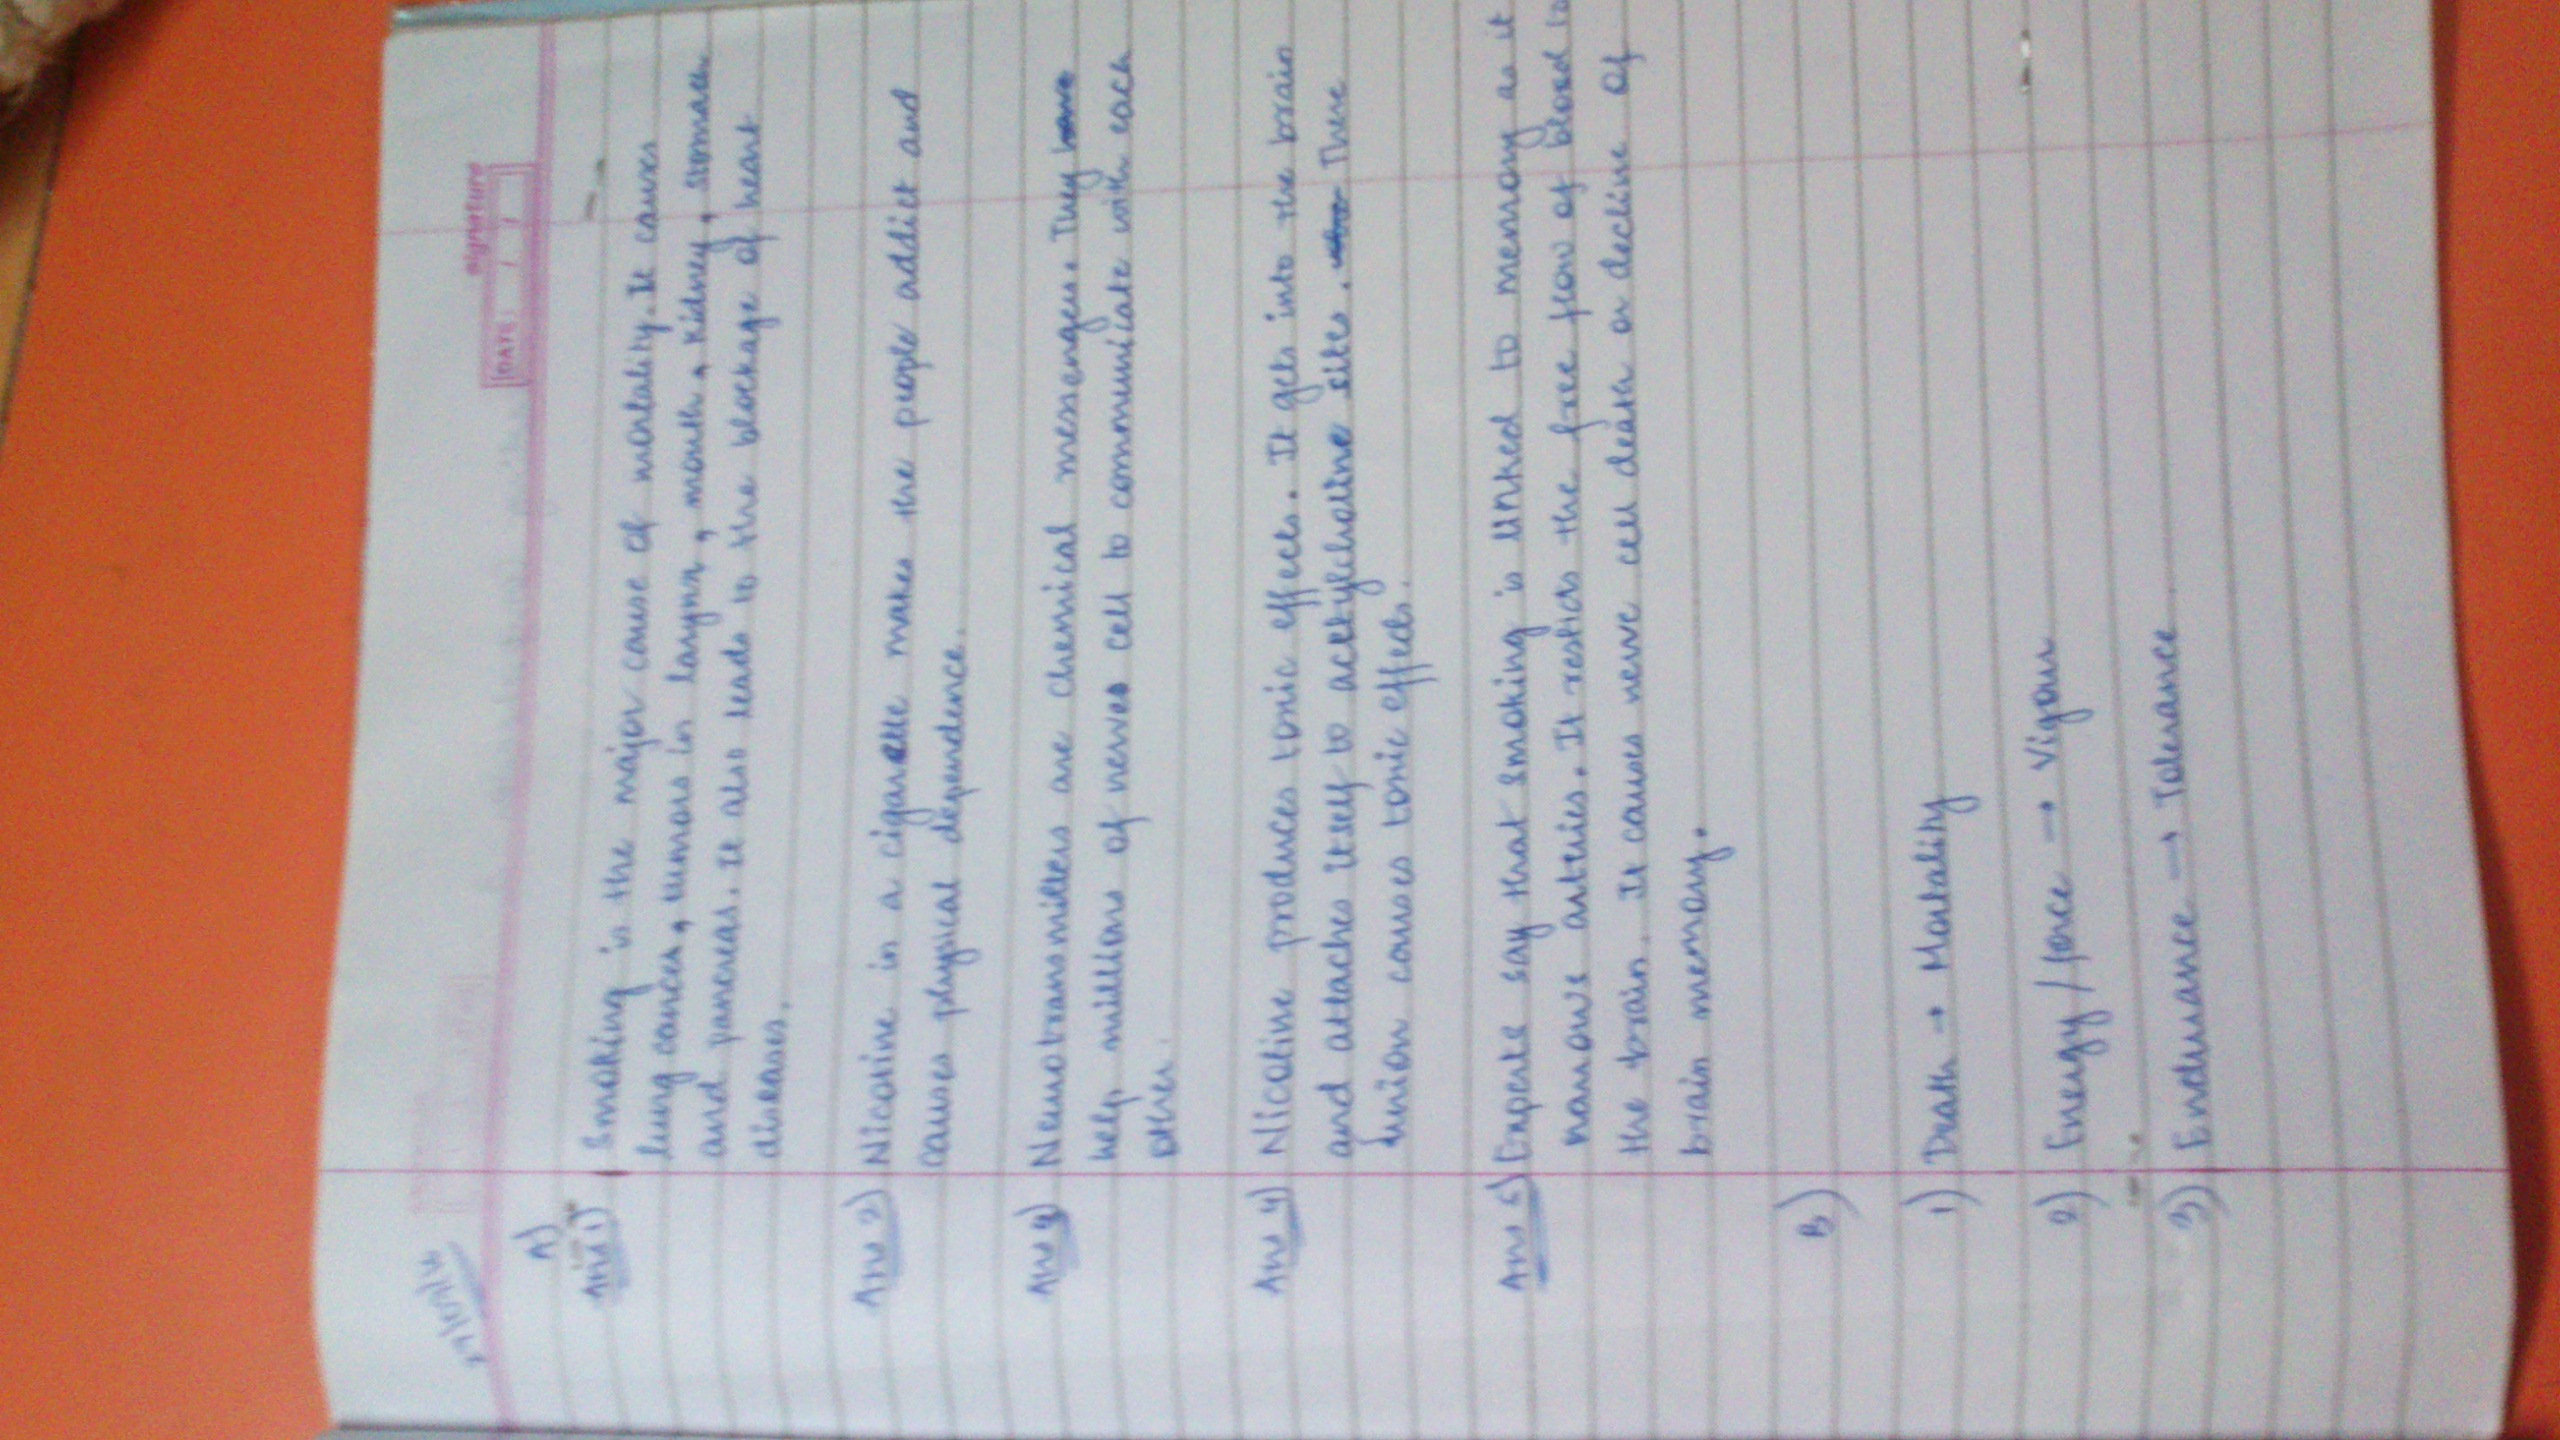 signature
DATE: / /
A)
Ans 1) Smoking is the major cause of mortality. It causes
lung cancer, tumors in larynx, mouth, kidney, stomach
and pancreas. It also leads to the blockage of heart
diseases.
Ans 2) Nicotine in a cigarette makes the people addict and
causes physical dependence.
Ans 3) Neurotransmitters are chemical messengers. They have
help millions of nerves cell to communicate with each
other.
Ans 4) Nicotine produces tonic effects. It gets into the brain
and attaches itself to acetylcholine sites. There
union causes tonic effects.
Ans 5) Experts say that smoking is linked to memory as it
narrows arteries. It resticts the free flow of blood to
the brain. It causes nerve cell death or decline of
brain memory.
B)
1) Death → Mortality
2) Energy / force → Vigour
3) Endurance → Tolerance